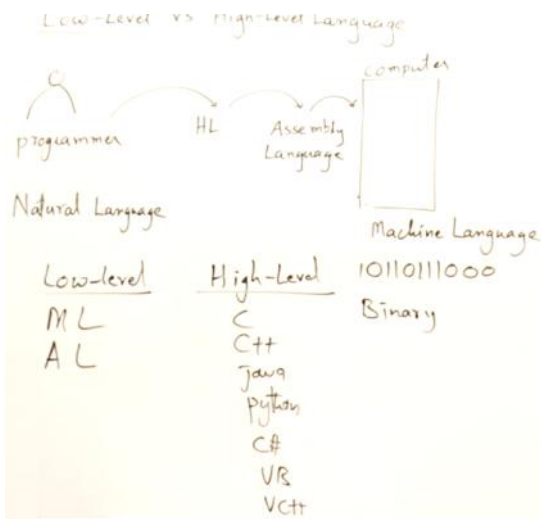 Low-Level vs High-Level Language
computer
programmer
HL
Assembly
Language
Natural Language
Machine Language
10110111000
Binary
Low-level
ML
AL
High-Level
C
C++
Java
python
C#
VB
VC++